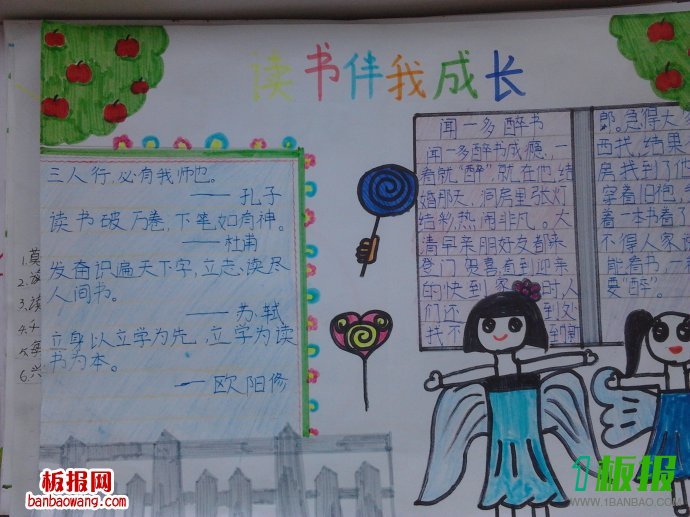 读书伴我成长
三人行,必有我师也。
——孔子
读书破万卷,下笔如有神。
——杜甫
发奋识遍天下字,立志读尽
人间书。
——苏轼
立身以立学为先,立学为读
书为本。
——欧阳修
闻一多醉书
闻一多醉书成瘾,一
看就“醉”,就在他结
婚那天,洞房里张灯
结彩,热闹非凡。大
清早亲朋好友都来
登门贺喜,直到迎亲
的快到家时,人
们还到处
找不到新
郎。急得大家
西找,结果
房找到了他
穿着旧袍,
着一本书看了
不得人家说
能看书,一看
要“醉”。
1.
2.
3.读
4.
5.
6.兴
板报网
banbaowang.com
1板报
WWW.1BANBAO.COM